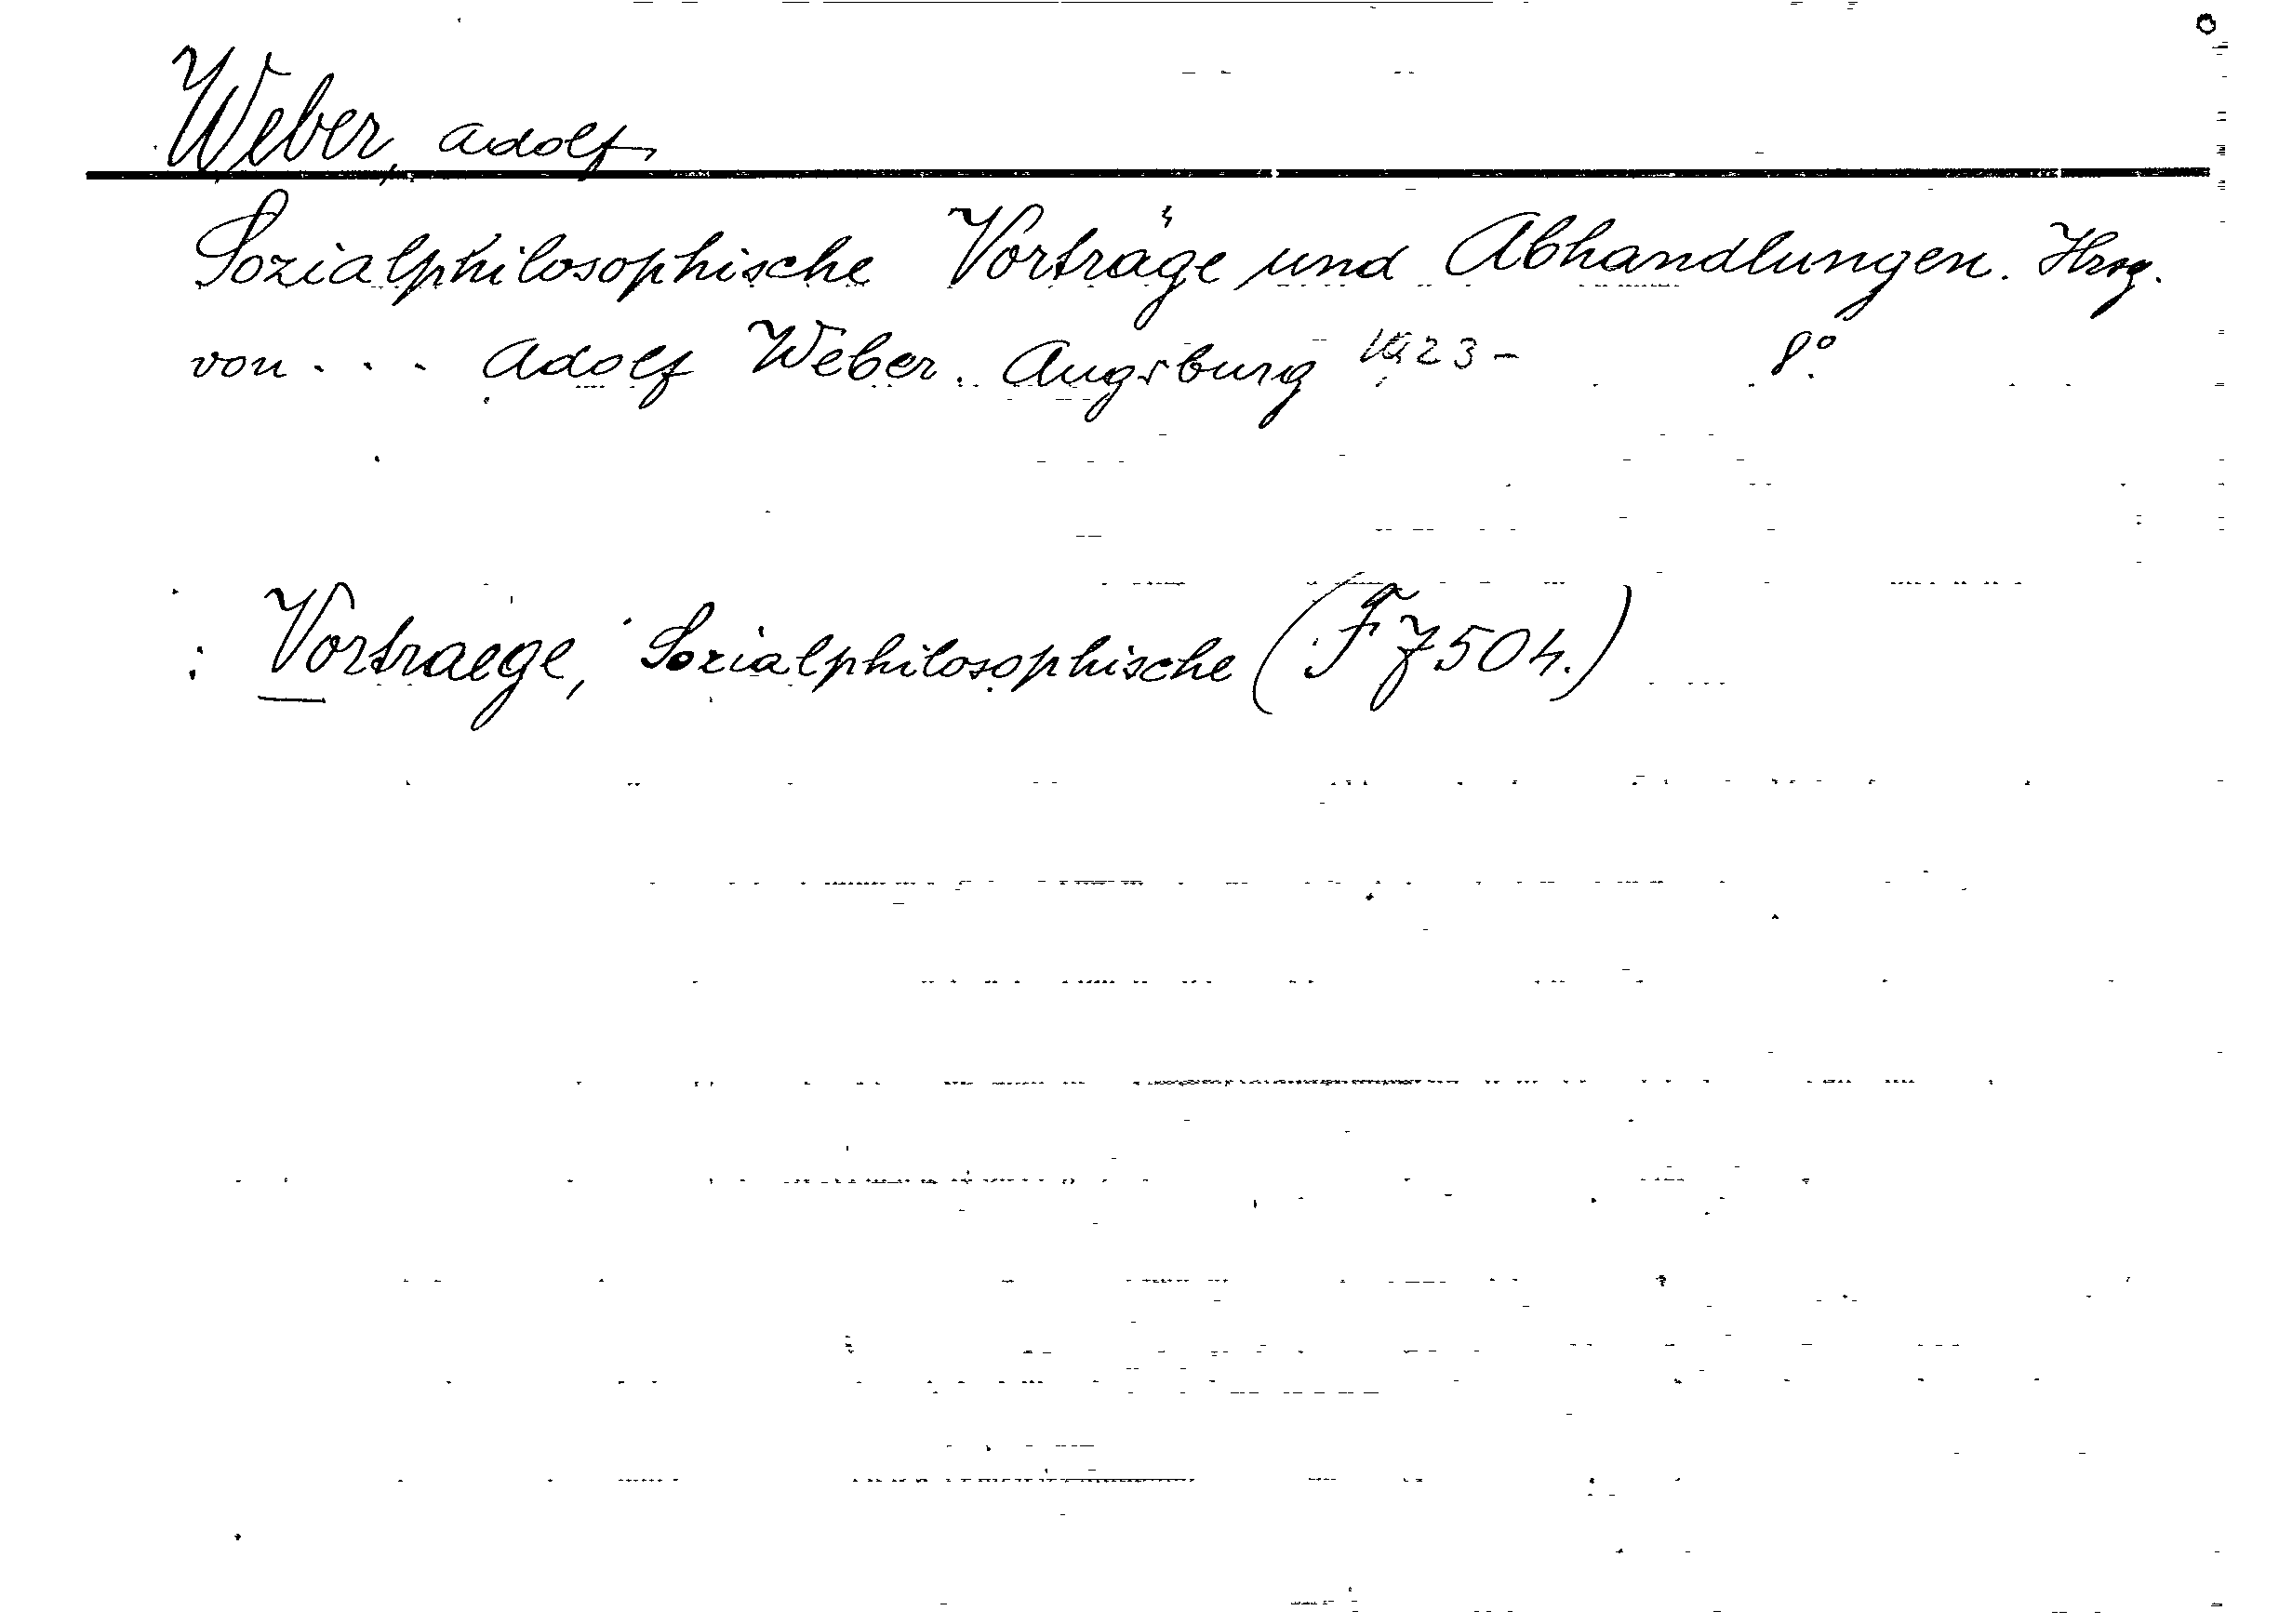 Weber, Adolf
Sozialphilosophische Vorträge und Abhandlungen. Hrsg.
von . . . Adolf Weber. Augsburg 1923- 8°.
: Vortraege, Sozialphilosophische (F 7504.)